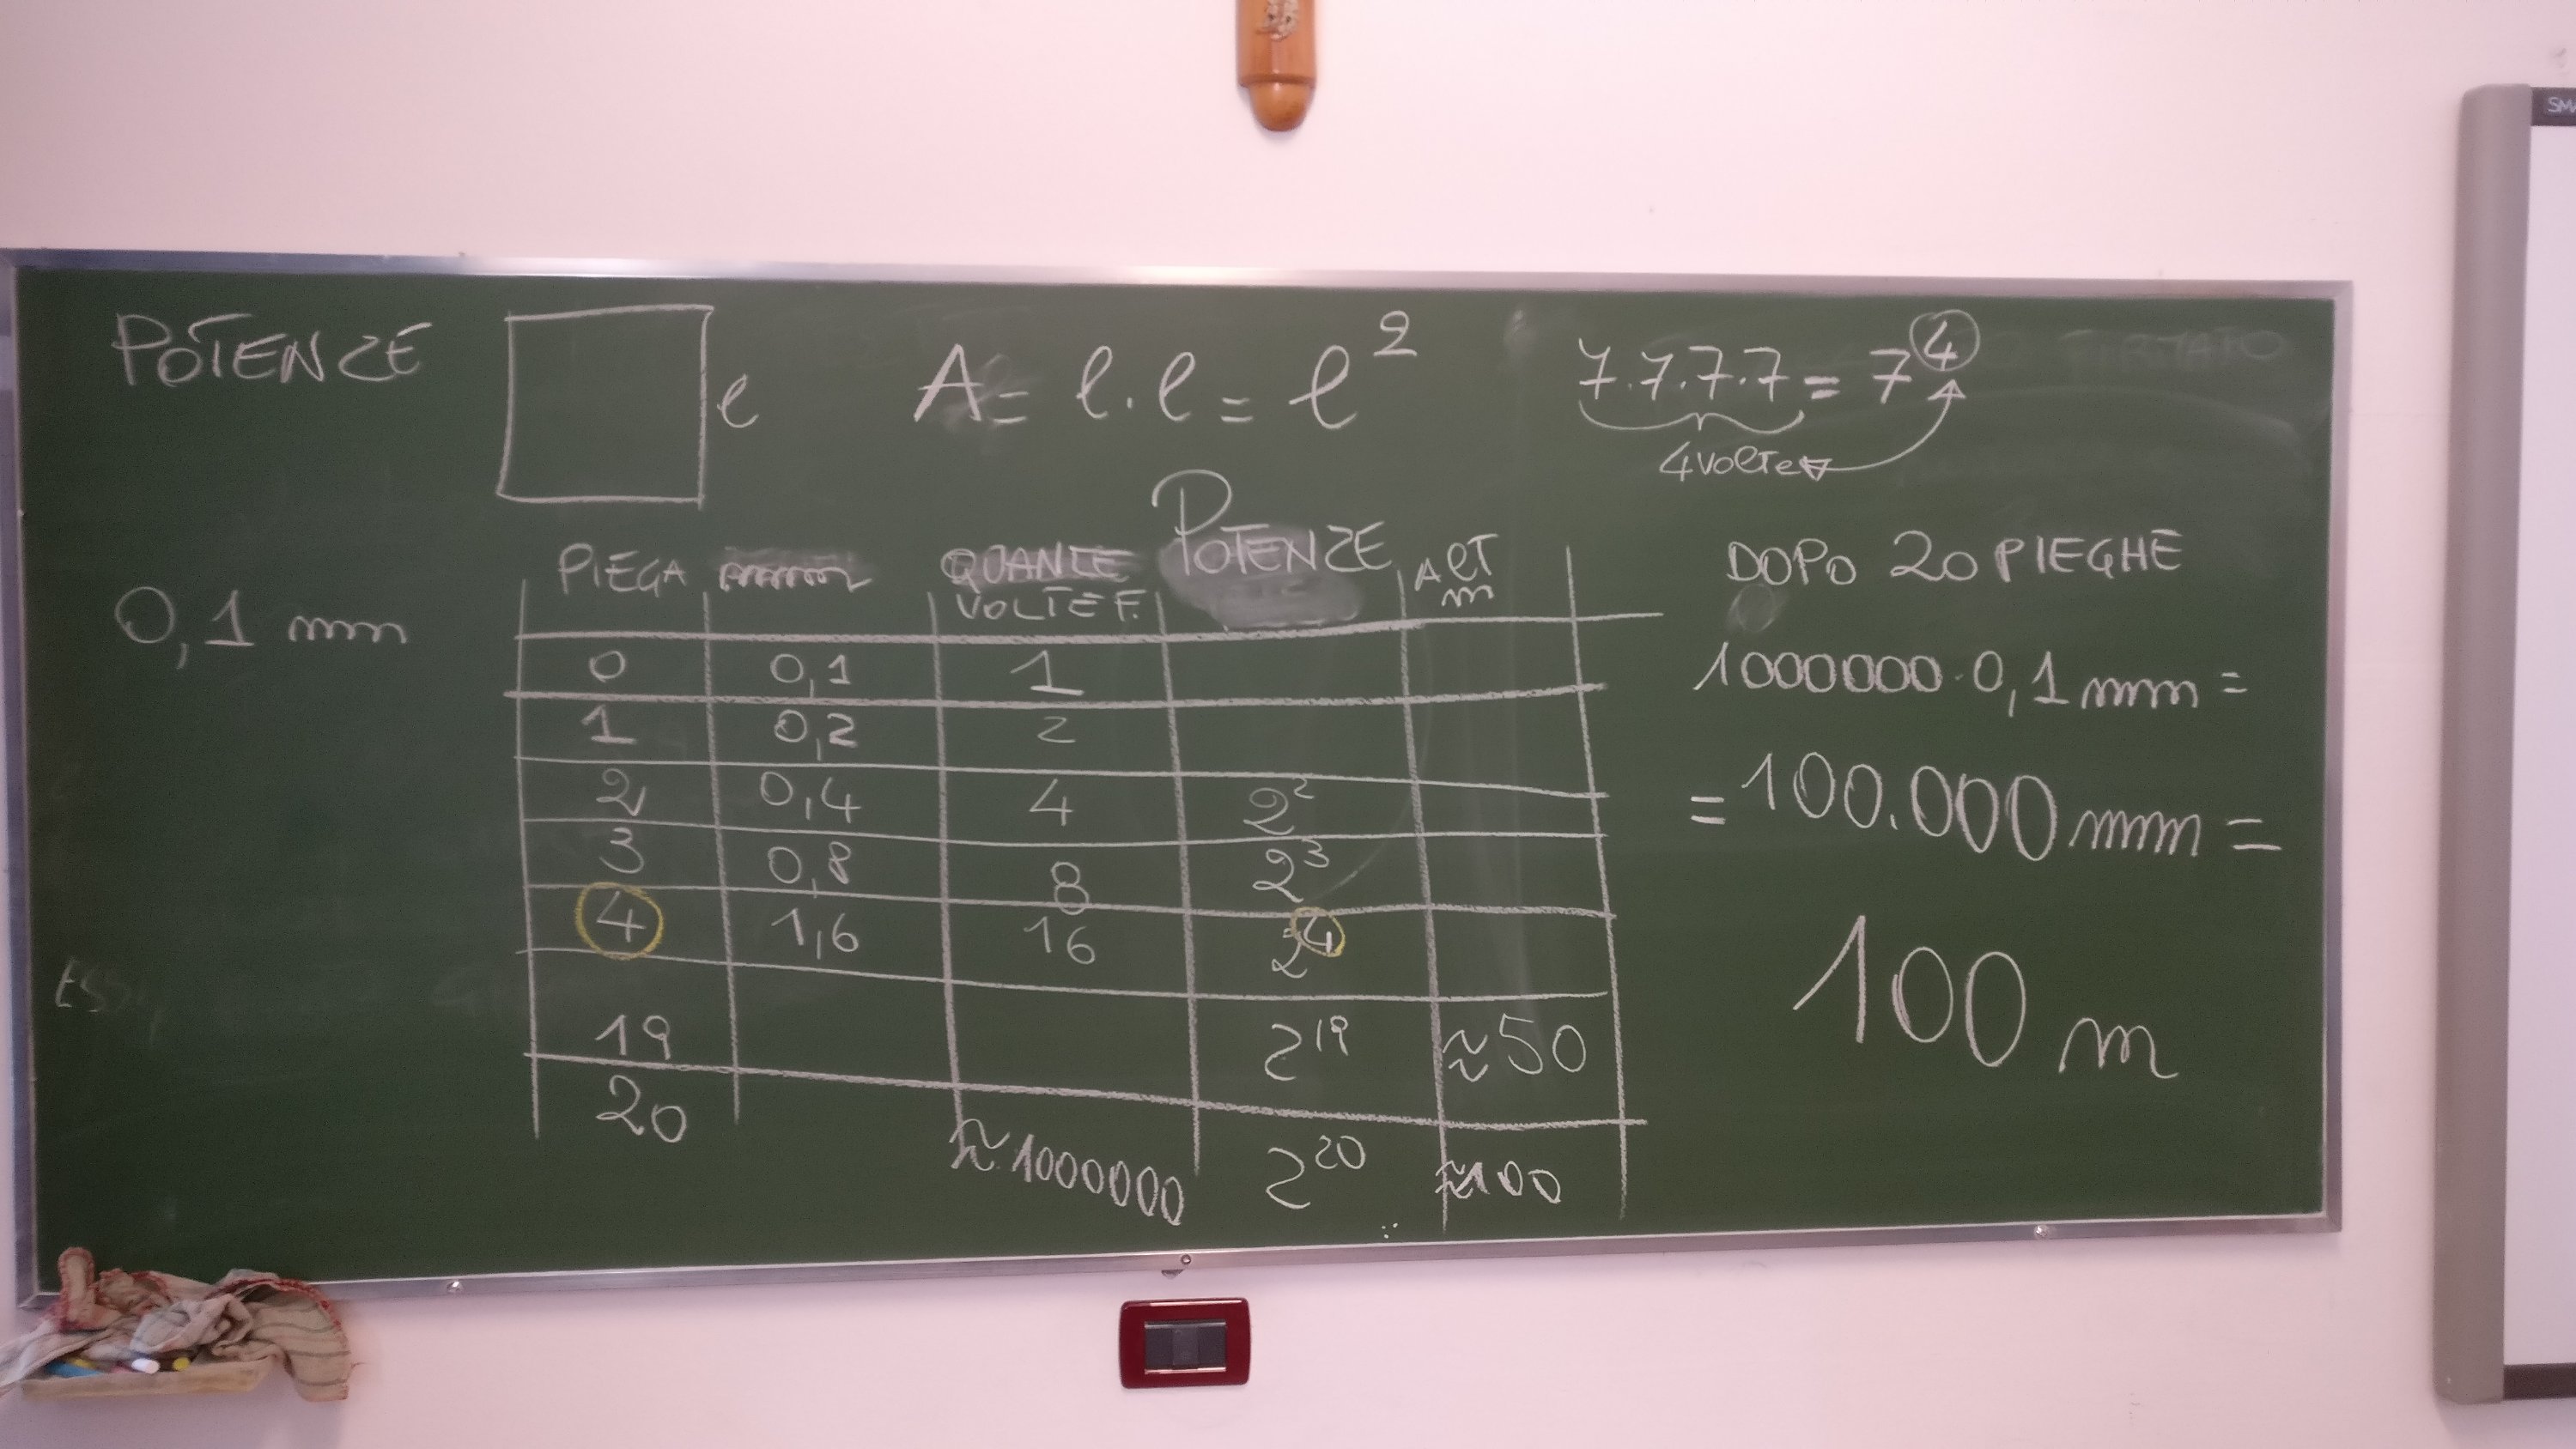 POTENZE
l
A = l·l = l²
7·7·7·7 = 7⁴
4 volte
0,1 mm
PIEGA mm QUANTE VOLTE F. POTENZE ALT m
0 0,1 1
1 0,2 2
2 0,4 4 2²
3 0,8 8 2³
4 1,6 16 2⁴
19 2¹⁹ ≈50
20 ≈1000000 2²⁰ ≈100
DOPO 20 PIEGHE
1000000·0,1 mm =
= 100.000 mm =
100 m